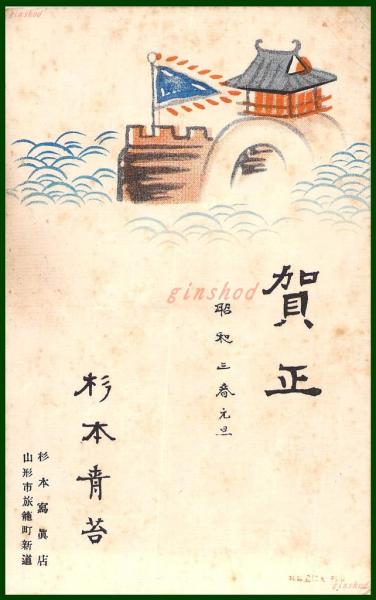 ginshod
賀正
ginshod
昭和三春元旦
杉本青苔
杉本寫眞店
山形市旅籠町新道
ginshod